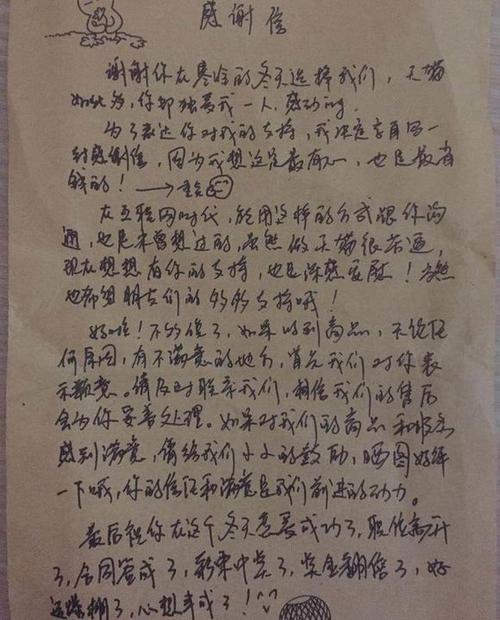 感谢信
谢谢你在寒冷的冬天选择我们，天猫
如此多，你却独爱我一人，感动ing.
为了表达你对我的支持，我决定亲自写一
封感谢信，因为我想这是最有心，也是最省
钱的！→重点
在互联网时代，能用这样的方式跟你沟
通，也是未曾想过的，虽然做天猫很苦逼，
现在想想有你的支持，也是深感安慰！当然
也希望朋友们的多多支持哦！
好啦！不多说了，如果收到商品，无论任
何原因，有不满意的地方，首先我们对你表
示歉意。请及时联系我们，相信我们的售后
会为你妥善处理。如果对我们的商品和服务
感到满意，请给我们小小的鼓励，晒图好评
一下哦，你的信任和满意是我们前进的动力。
最后祝你在这个冬天恋爱成功了，职位高升
了，合同签成了，彩票中奖了，奖金翻倍了，好
运爆棚了，心想事成了！^_^